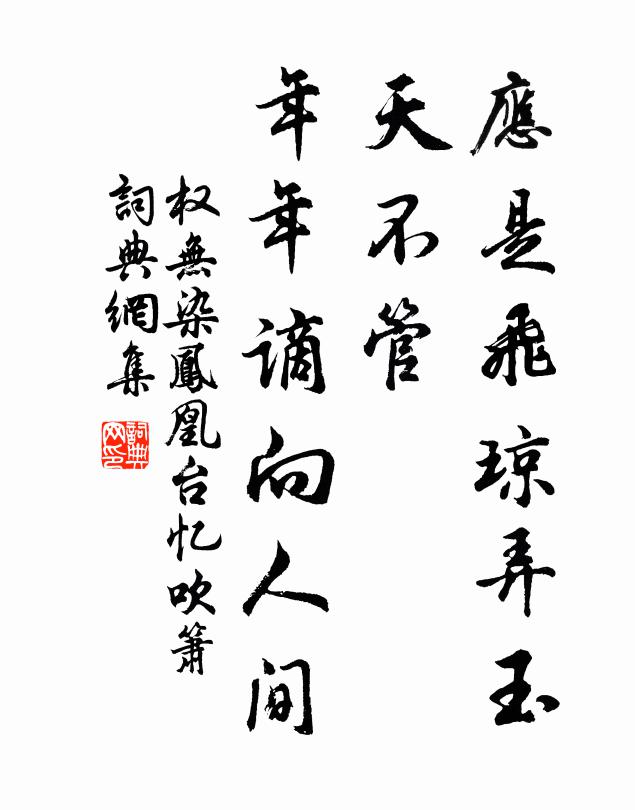 應是飛琼弄玉
天不管
年年謫向人间
权無染鳳凰台忆吹簫
詞典網集
詞典
网印